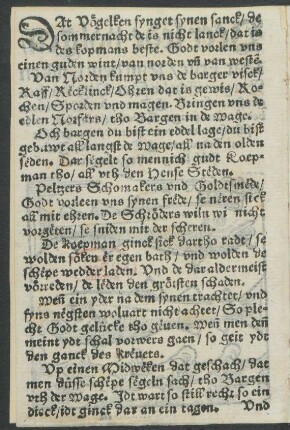 DAt Vögelken synget synen sanck/ de
sommernacht de is nicht lanck/ dat is
des kopmans beste. Godt vorlen vns
einen guden wint/ van norden vñ van westē.
Van Norden kumpt vns de barger visck/
Raff/ Recklinck/ Ohren dat is gewis/ Ro-
chen/ Sporden vnd magen. Bringen vns de
edlen Norstrs/ tho Bargen in de wage.
Och bargen du bist ein eddel lage/ du bist
gebuwt all langst de wage/ all na den olden
seden. Dar segelt so mennich gudt Koep-
man tho/ all vth den Hense Steden.
Peltzers Schomakers vnd Goldtsmede/
Godt vorleen vns synen frede/ se neren sick
all mit ehren. De Schröders wiln wi nicht
vorgeten/ se sniden mit der scheren.
De koepman ginck sick dartho radt/ se
wolden söken er egen bath/ vnd wolden de
schepe wedder laden. Vnd de dar aldermeist
vörreden/ de leden den grötsten schaden.
Weñ ein yder na dem synen trachtet/ vnd
syns negsten woluart nicht achtet/ So ple-
cht Godt gelücke tho geuen. Weñ men deñ
meint ydt schal vorwers gaen/ so geit ydt
den ganck des Kreuets.
Vp einen Midweken dat geschach/ dat
men düsse schepe segeln sach/ tho Bargen
vth der Wage. Idt wart so still recht so ein
dieck/ idt ginck dar an ein tagen. Vnd